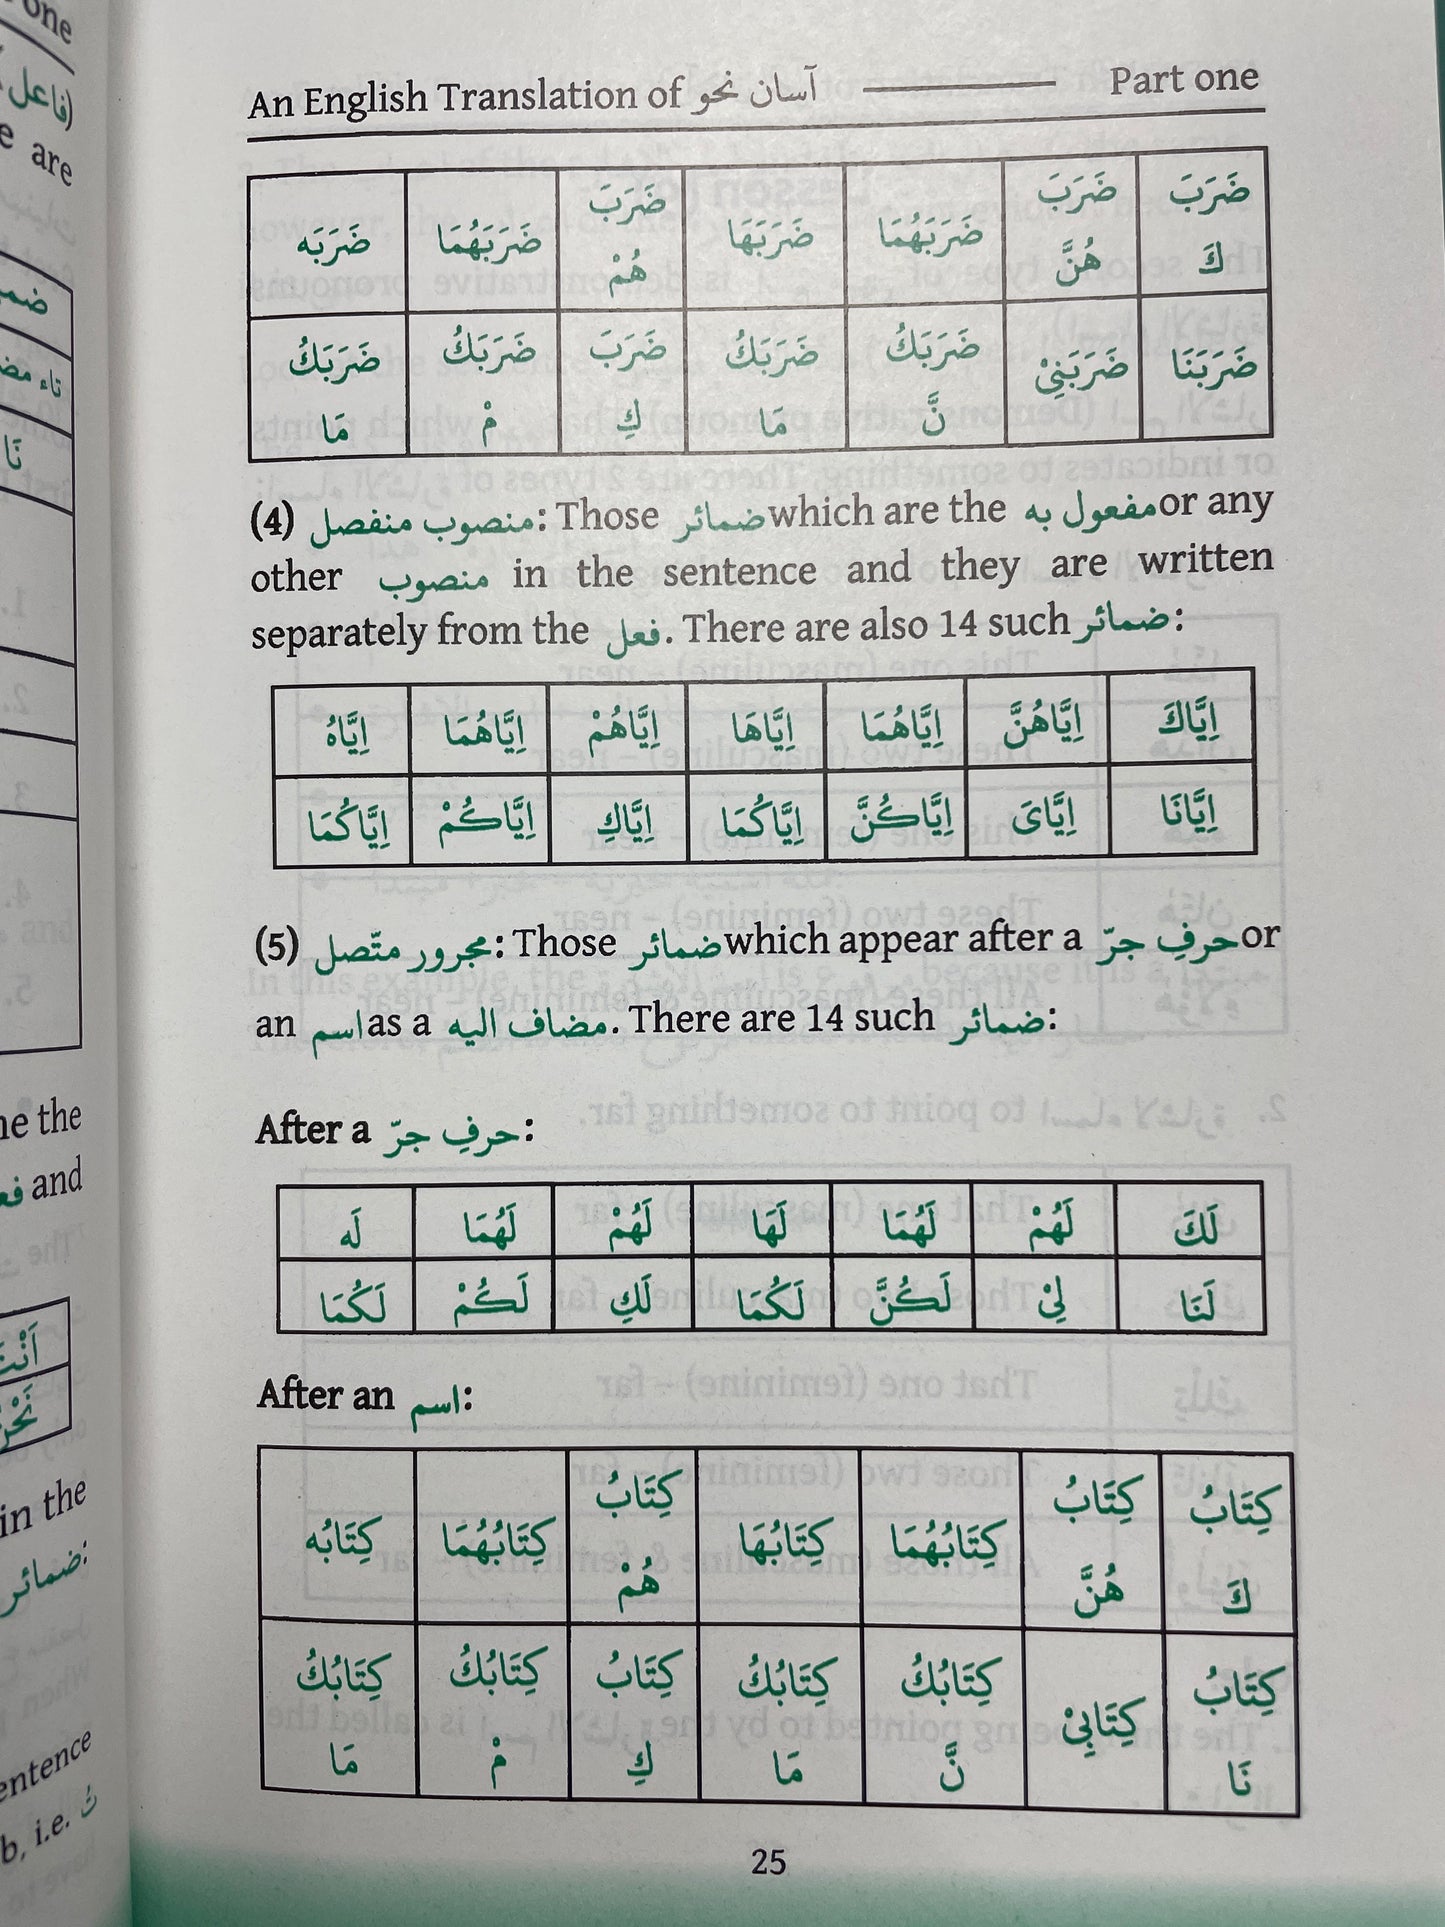 An English Translation of آسان نحو ——— Part one
ضَرَبَه ضَرَبَهُمَا ضَرَبَ هُمْ ضَرَبَهَا ضَرَبَهُمَا ضَرَبَ هُنَّ ضَرَبَ كَ
ضَرَبَكُ مَا ضَرَبَكُ مْ ضَرَبَ كِ ضَرَبَكُ مَا ضَرَبَكُ نَّ ضَرَبَنِيْ ضَرَبَنَا
(4) منصوب منفصل: Those ضمائر which are the مفعول به or any
other منصوب in the sentence and they are written
separately from the فعل. There are also 14 such ضمائر:
اِيَّاهُ اِيَّاهُمَا اِيَّاهُمْ اِيَّاهَا اِيَّاهُمَا اِيَّاهُنَّ اِيَّاكَ
اِيَّاكُمَا اِيَّاكُمْ اِيَّاكِ اِيَّاكُمَا اِيَّاكُنَّ اِيَّاىَ اِيَّانَا
(5) مجرور متّصل: Those ضمائر which appear after a حرفِ جرّ or
an اسم as a مضاف اليه. There are 14 such ضمائر:
After a حرفِ جرّ:
لَه لَهُمَا لَهُمْ لَهَا لَهُمَا لَهُمْ لَكَ
لَكُمَا لَكُمْ لَكِ لَكُمَا لَكُنَّ لِيْ لَنَا
After an اسم:
كِتَابُه كِتَابُهُمَا كِتَابُ هُمْ كِتَابُهَا كِتَابُهُمَا كِتَابُ هُنَّ كِتَابُ كَ
كِتَابُكُ مَا كِتَابُكُ مْ كِتَابُ كِ كِتَابُكُ مَا كِتَابُكُ نَّ كِتَابِيْ كِتَابُ نَا
25